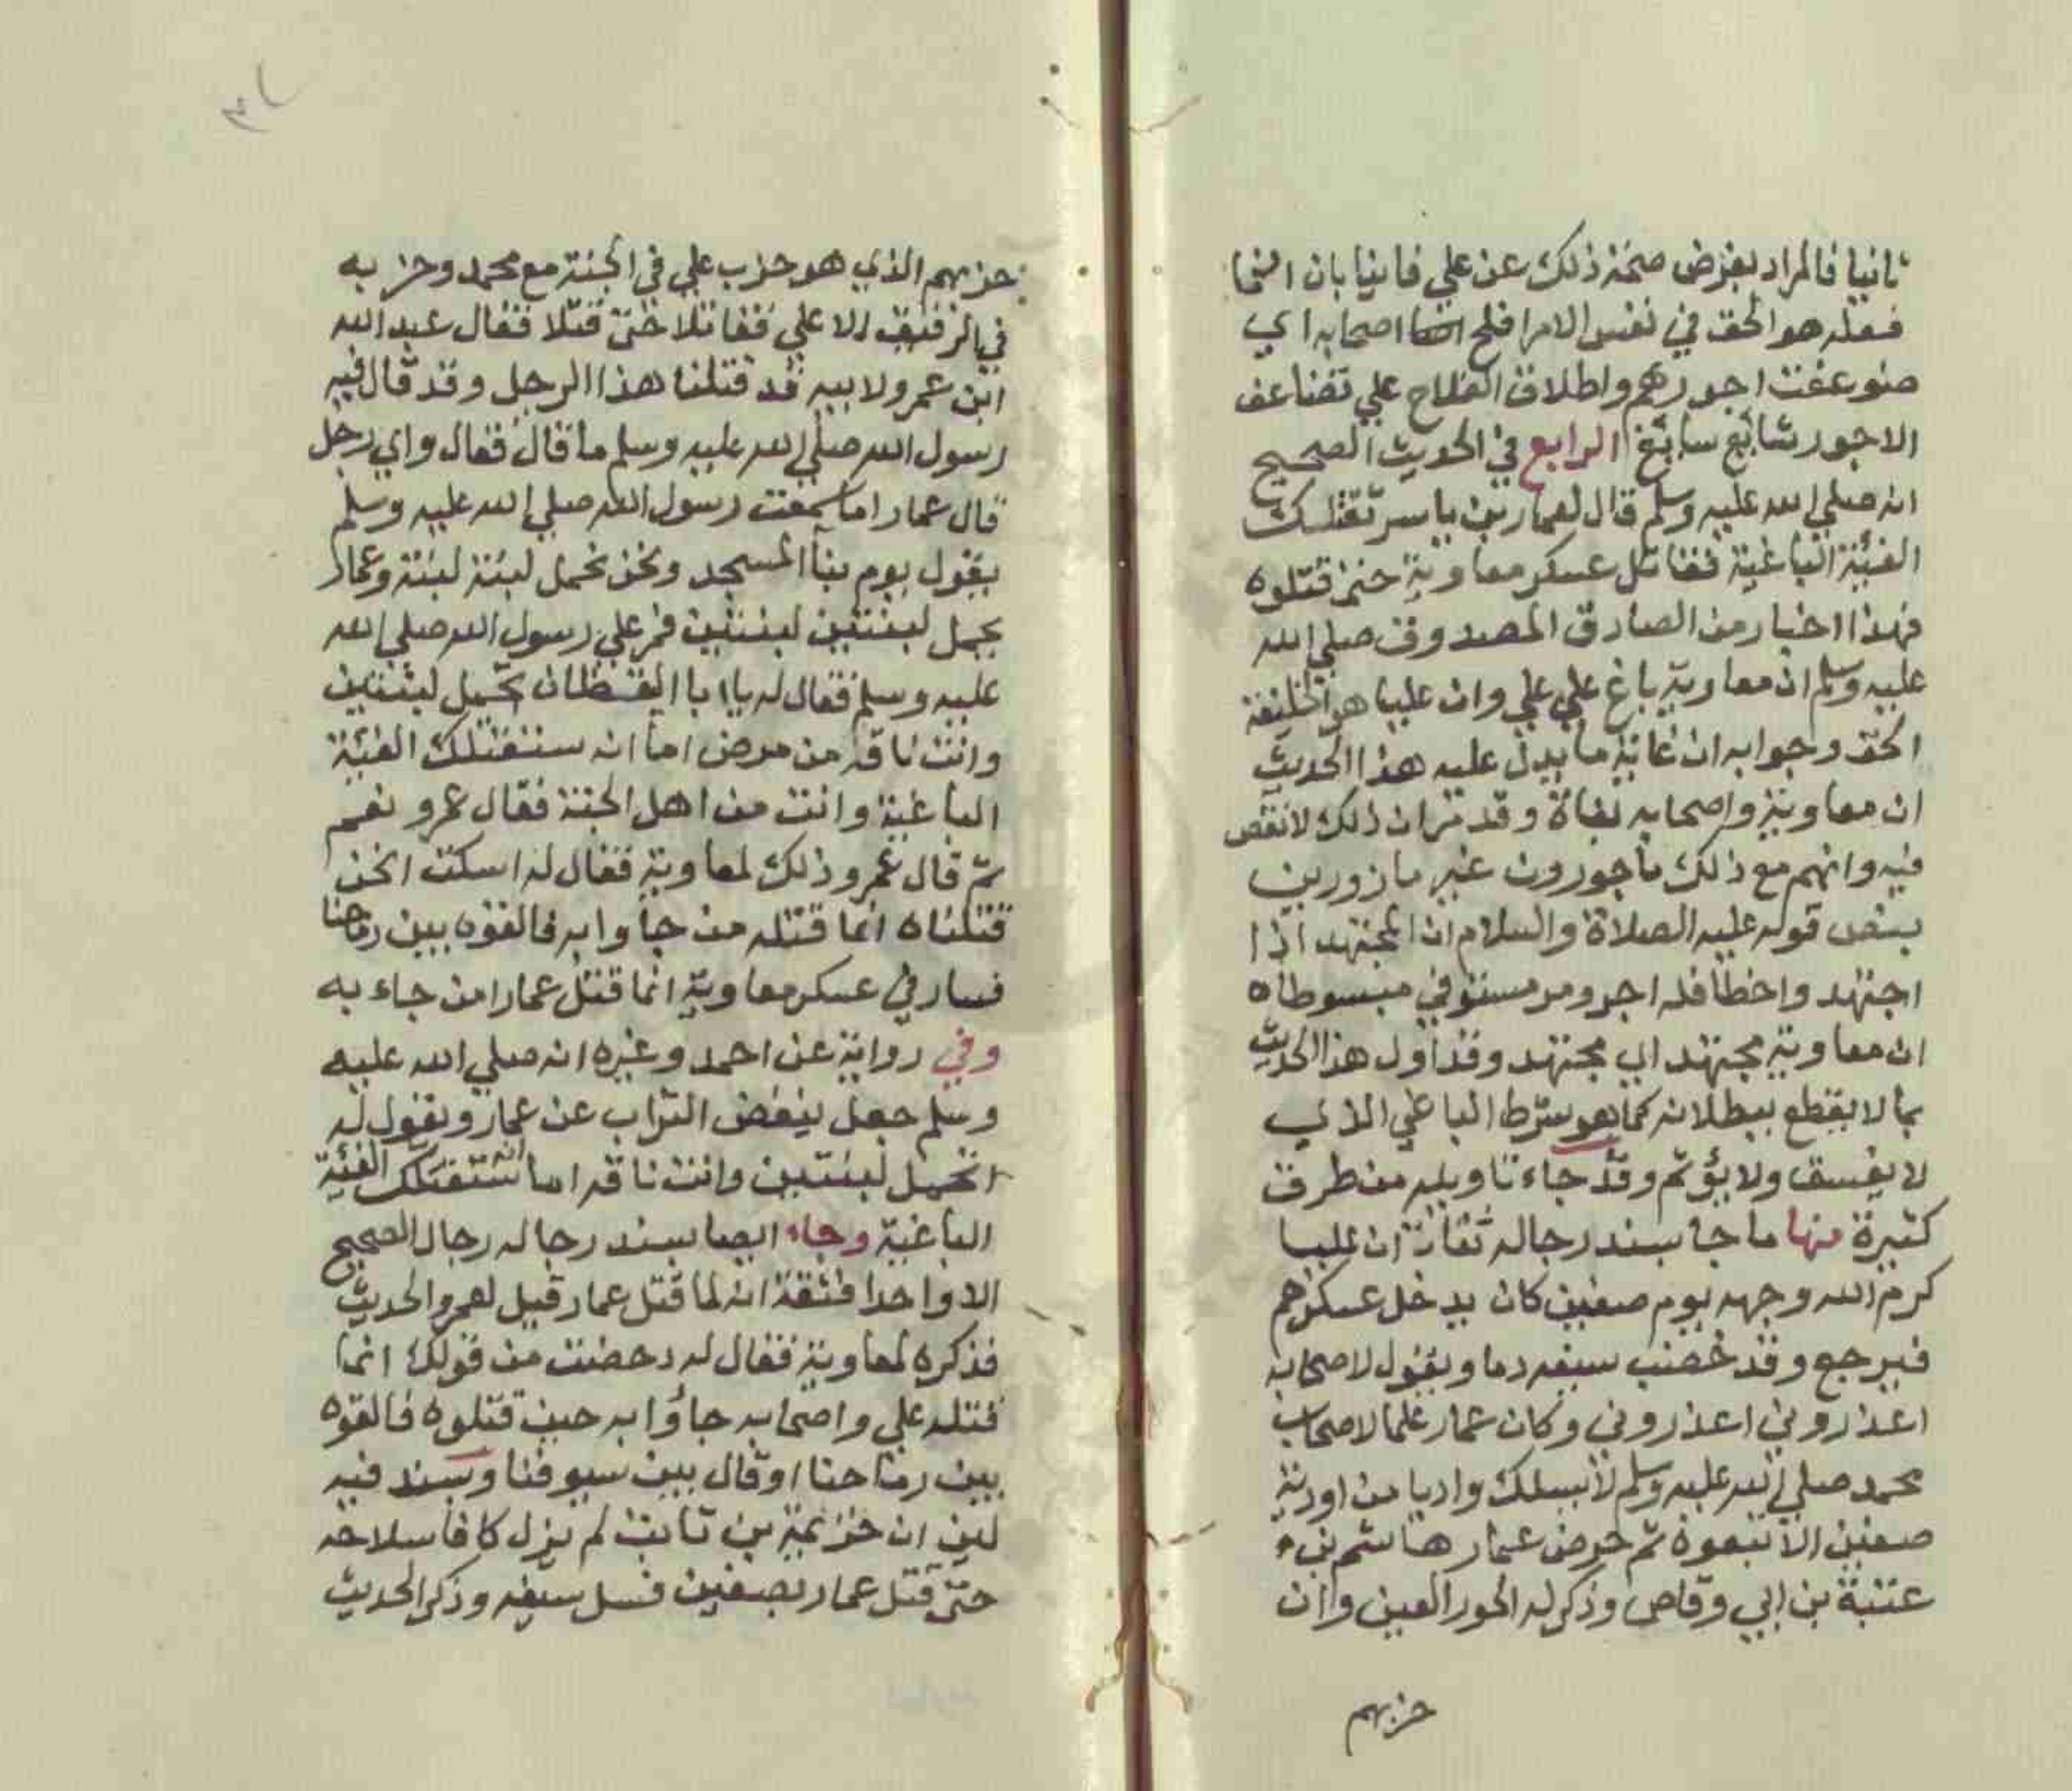 ثانيا فالمراد بفرض صحة ذلك عن علي فانيا بان انما
فعله هو الحق في نفس الامر افلح اصحابه اي
ضوعفت اجورهم واطلاق الفلاح علي تضاعف
الاجور شائع سائغ الرابع في الحديث الصحيح
انه صلي الله عليه وسلم قال لعمار بن ياسر تقتلك
الفئة الباغية فقاتل عسكر معاوية حتي قتلوه
فهذا اخبار من الصادق المصدوق صلي الله
عليه وسلم ان معاوية باغ علي علي وان عليا هو الخليفة
الحق وجوابه ان غاية ما يدل عليه هذا الحديث
ان معاوية واصحابه بغاة وقد مر ان ذلك لا نقص
فيه وانهم مع ذلك مأجورون غير مازورين
بنص قوله عليه الصلاة والسلام ان المجتهد اذا
اجتهد واخطا فله اجر ومر مستوفي مبسوطا ه
ان معاوية مجتهد اي مجتهد وقد أول هذا الحديث
بما لا يقطع ببطلانه كما هو شرط الباغي الذي
لا يفسق ولا يؤثم وقد جاء تاويله من طرق
كثيرة منها ما جا بسند رجاله ثقات ان عليا
كرم الله وجهه يوم صفين كان يدخل عسكرهم
فيرجع وقد خضب سيفه دما ويقول لاصحابه
اعذروني اعذروني وكان عمار علما لاصحاب
محمد صلي الله عليه وسلم لا يسلك واديا من اودية
صفين الا تبعوه ثم حرض عمار هاشم بن
عتبة بن ابي وقاص وذكر له الحور العين وان
حزبهم
حزبهم الذي هو حزب علي في الجنة مع محمد وحزبه
في الرفيق الا علي فقاتلا حتي قتلا فقال عبد الله
ابن عمرو لابيه قد قتلنا هذا الرجل وقد قال فيه
رسول الله صلي الله عليه وسلم ما قال فقال واي رجل
قال عمار اما سمعت رسول الله صلي الله عليه وسلم
يقول يوم بنا المسجد ونحن نحمل لبنة لبنة وعمار
يحمل لبنتين لبنتين فمر علي رسول الله صلي الله
عليه وسلم فقال له يا ابا اليقظان تحمل لبنتين
وانت ناقه من مرض اما انه ستقتلك الفئة
الباغية وانت من اهل الجنة فقال عمرو نعم
ثم قال عمرو ذلك لمعاوية فقال له اسكت انحن
قتلناه انما قتله من جاوا به فالقوه بين رماحنا
فسار في عسكر معاوية انما قتل عمارا من جاء به
وفي رواية عن احمد وغيره انه صلي الله عليه
وسلم جعل ينفض التراب عن عمار ويقول له
اتحمل لبنتين وانت ناقه اما انه ستقتلك الفئية
الباغية وجاء ايضا بسند رجاله رجال الصحيح
الا واحدا فثقة انه لما قتل عمار قيل لعمرو الحديث
فذكره لمعاوية فقال له دحضت من قولك انما
قتله علي واصحابه جاؤا به حين قتلوه فالقوه
بين رماحنا او قال بين سيوفنا وبسند فيه
لين ان خزيمة بن ثابت لم يزل كافا سلاحه
حتي قتل عمار بصفين فسل سيفه وذكر الحديث